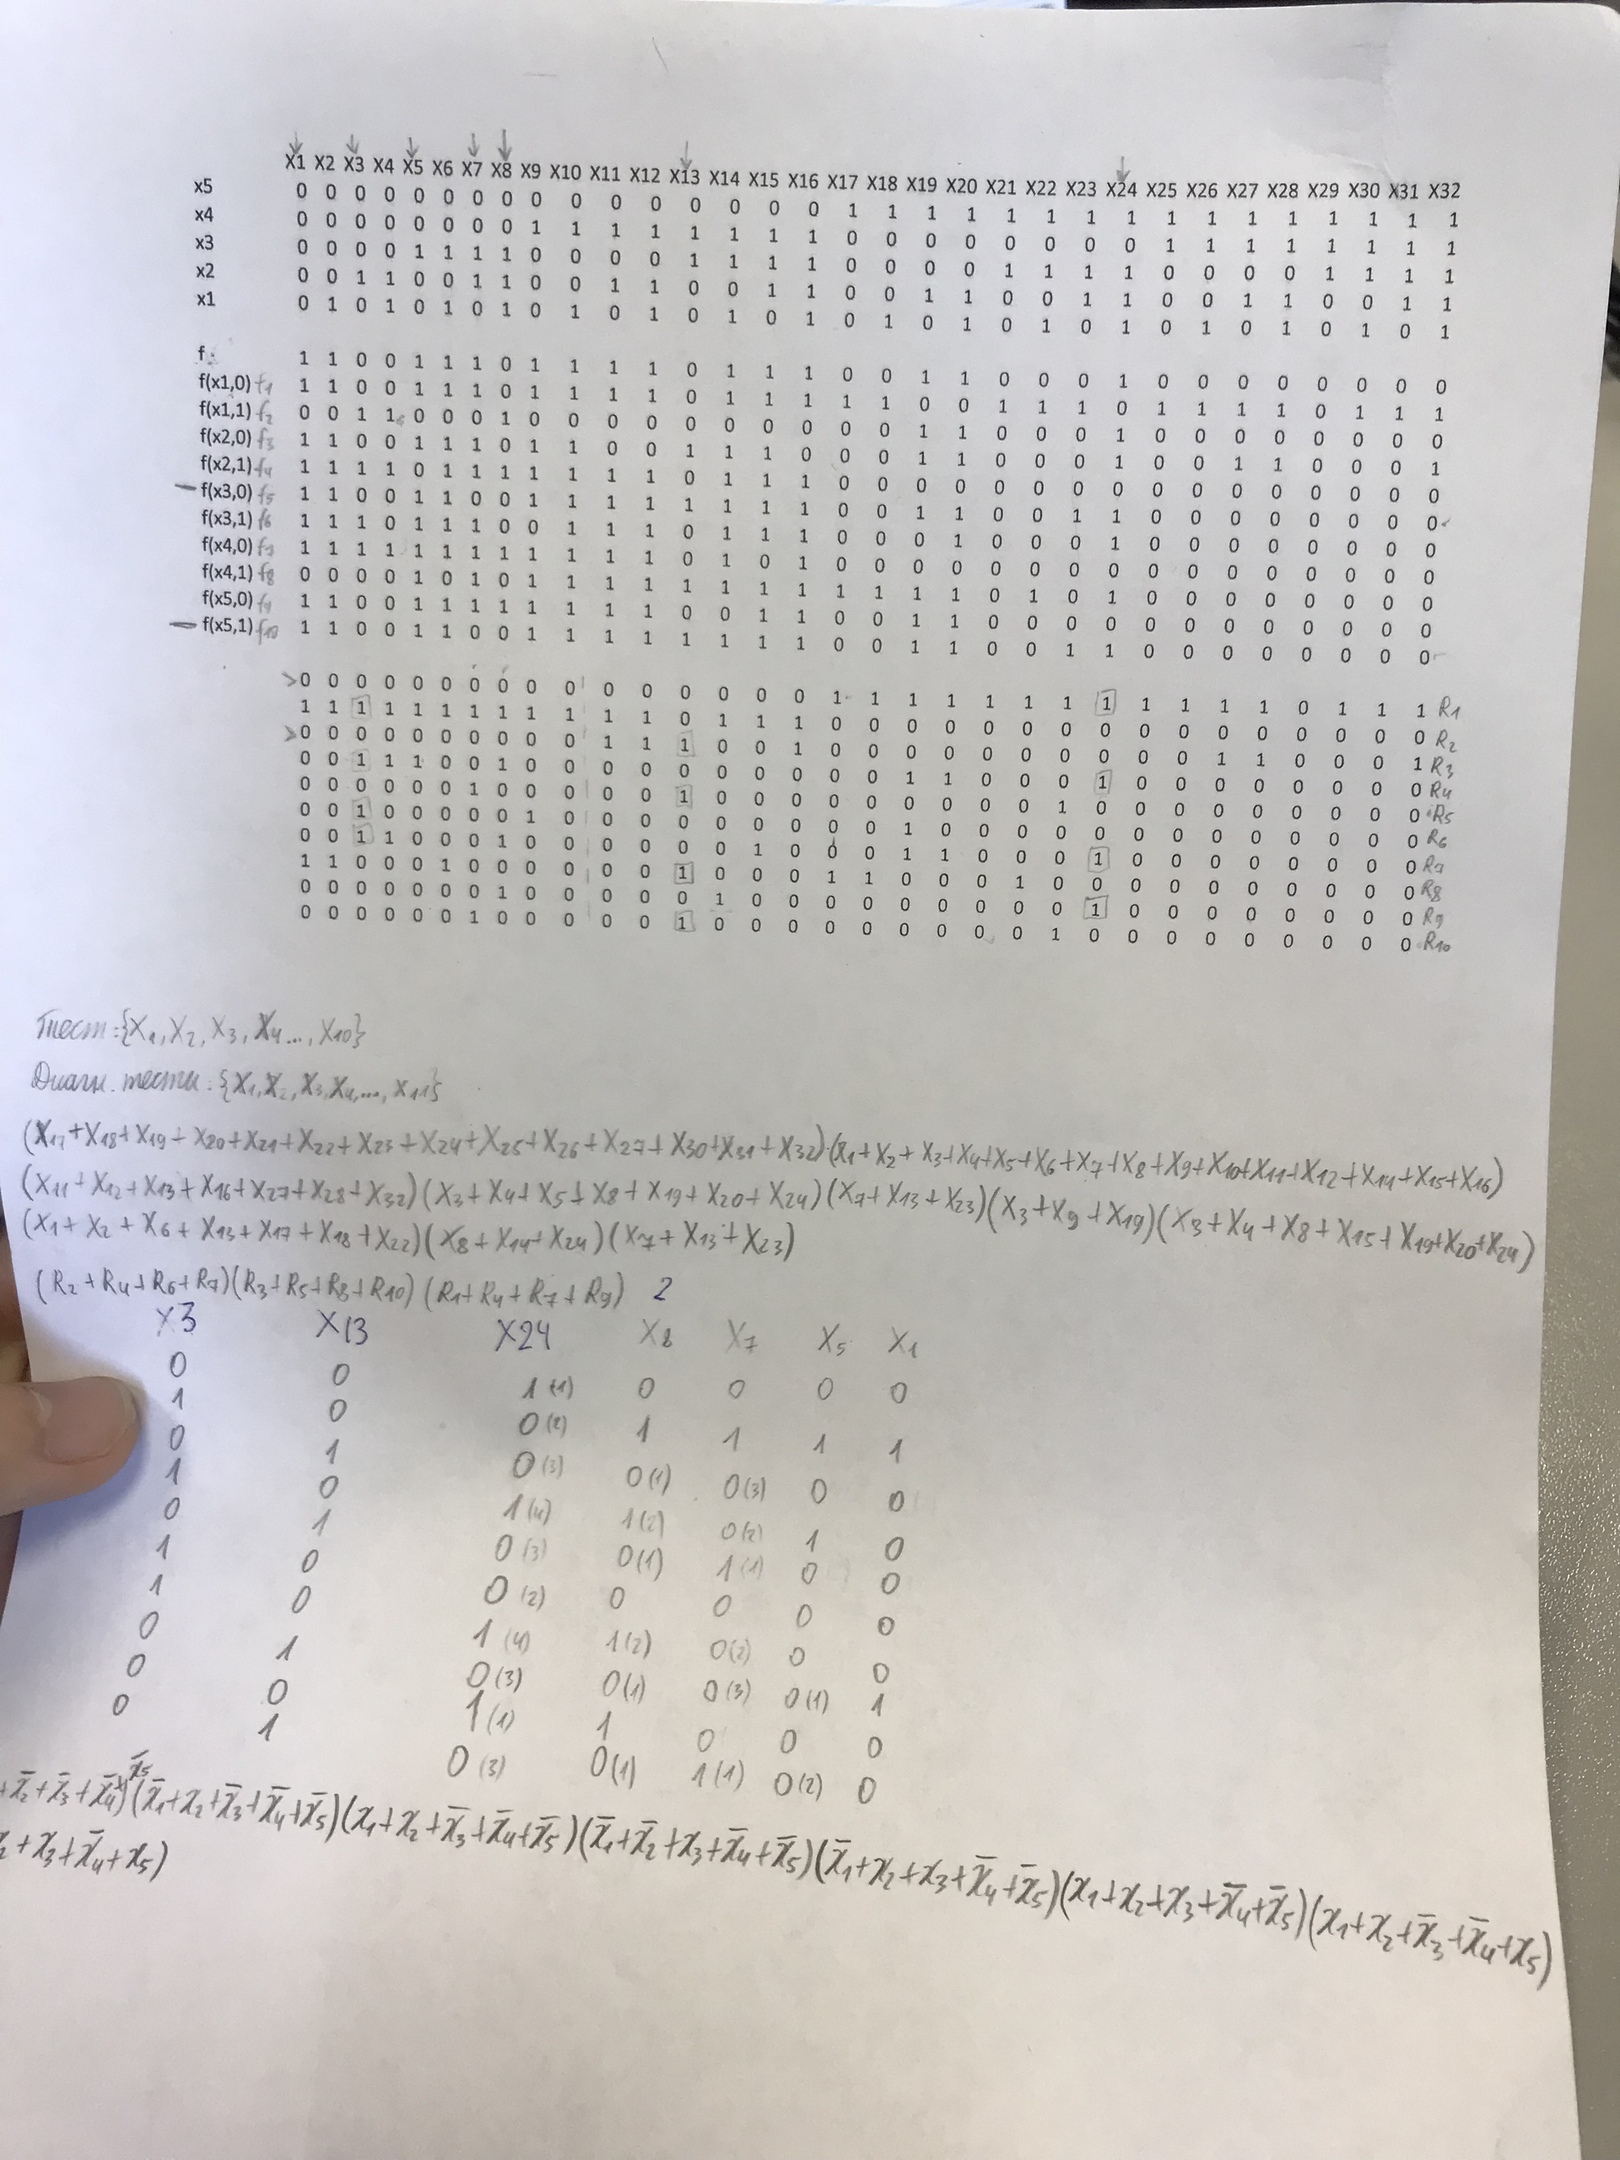 X1 X2 X3 X4 X5 X6 X7 X8 X9 X10 X11 X12 X13 X14 X15 X16 X17 X18 X19 X20 X21 X22 X23 X24 X25 X26 X27 X28 X29 X30 X31 X32
x5 0 0 0 0 0 0 0 0 0 0 0 0 0 0 0 0 1 1 1 1 1 1 1 1 1 1 1 1 1 1 1 1
x4 0 0 0 0 0 0 0 0 1 1 1 1 1 1 1 1 0 0 0 0 0 0 0 0 1 1 1 1 1 1 1 1
x3 0 0 0 0 1 1 1 1 0 0 0 0 1 1 1 1 0 0 0 0 1 1 1 1 0 0 0 0 1 1 1 1
x2 0 0 1 1 0 0 1 1 0 0 1 1 0 0 1 1 0 0 1 1 0 0 1 1 0 0 1 1 0 0 1 1
x1 0 1 0 1 0 1 0 1 0 1 0 1 0 1 0 1 0 1 0 1 0 1 0 1 0 1 0 1 0 1 0 1
f 1 1 0 0 1 1 1 0 1 1 1 1 0 1 1 1 0 0 1 1 0 0 0 1 0 0 0 0 0 0 0 0
f(x1,0) f1 1 1 0 0 1 1 1 0 1 1 1 1 0 1 1 1 1 1 0 0 1 1 1 0 1 1 1 1 0 1 1 1
f(x1,1) f2 0 0 1 1 0 0 0 1 0 0 0 0 0 0 0 0 0 0 1 1 0 0 0 1 0 0 0 0 0 0 0 0
f(x2,0) f3 1 1 0 0 1 1 1 0 1 1 0 0 1 1 1 0 0 0 1 1 0 0 0 1 0 0 1 1 0 0 0 1
f(x2,1) f4 1 1 1 1 0 1 1 1 1 1 1 1 0 1 1 1 0 0 0 0 0 0 0 0 0 0 0 0 0 0 0 0
f(x3,0) f5 1 1 0 0 1 1 0 0 1 1 1 1 1 1 1 1 0 0 1 1 0 0 1 1 0 0 0 0 0 0 0 0
f(x3,1) f6 1 1 1 0 1 1 1 0 0 1 1 1 0 1 1 1 0 0 0 1 0 0 0 1 0 0 0 0 0 0 0 0
f(x4,0) f7 1 1 1 1 1 1 1 1 1 1 1 1 0 1 0 1 0 0 0 0 0 0 0 0 0 0 0 0 0 0 0 0
f(x4,1) f8 0 0 0 0 1 0 1 0 1 1 1 1 1 1 1 1 1 1 1 1 0 1 0 1 0 0 0 0 0 0 0 0
f(x5,0) f9 1 1 0 0 1 1 1 1 1 1 1 1 0 0 1 1 0 0 1 1 0 0 0 0 0 0 0 0 0 0 0 0
f(x5,1) f10 1 1 0 0 1 1 0 0 1 1 1 1 1 1 1 1 0 0 1 1 0 0 1 1 0 0 0 0 0 0 0 0
0 0 0 0 0 0 0 0 0 0 0 0 0 0 0 0 1 1 1 1 1 1 1 1 1 1 1 1 0 1 1 1 R1
1 1 1 1 1 1 1 1 1 1 1 1 0 1 1 1 0 0 0 0 0 0 0 0 0 0 0 0 0 0 0 0 R2
0 0 0 0 0 0 0 0 0 0 1 1 1 0 0 1 0 0 0 0 0 0 0 0 0 0 1 1 0 0 0 1 R3
0 0 1 1 1 0 0 1 0 0 0 0 0 0 0 0 0 0 1 1 0 0 0 1 0 0 0 0 0 0 0 0 R4
0 0 0 0 0 0 1 0 0 0 0 0 1 0 0 0 0 0 0 0 0 0 1 0 0 0 0 0 0 0 0 0 R5
0 0 1 0 0 0 0 0 1 0 0 0 0 0 0 0 0 0 1 0 0 0 0 0 0 0 0 0 0 0 0 0 R6
0 0 1 1 0 0 0 1 0 0 0 0 0 0 1 0 0 0 1 1 0 0 0 1 0 0 0 0 0 0 0 0 R7
1 1 0 0 0 1 0 0 0 0 0 0 1 0 0 0 1 1 0 0 0 1 0 0 0 0 0 0 0 0 0 0 R8
0 0 0 0 0 0 0 1 0 0 0 0 0 1 0 0 0 0 0 0 0 0 0 1 0 0 0 0 0 0 0 0 R9
0 0 0 0 0 0 1 0 0 0 0 0 1 0 0 0 0 0 0 0 0 0 1 0 0 0 0 0 0 0 0 0 R10
Тест: {X1, X2, X3, X4..., X10}
Диагн. тесты: {X1, X2, X3, X4,..., X11}
(X17+X18+X19+X20+X21+X22+X23+X24+X25+X26+X27+X30+X31+X32)(X1+X2+X3+X4+X5+X6+X7+X8+X9+X10+X11+X12+X14+X15+X16)
(X11+X12+X13+X16+X27+X28+X32)(X3+X4+X5+X8+X19+X20+X24)(X7+X13+X23)(X3+X9+X19)(X3+X4+X8+X15+X19+X20+X24)
(X1+X2+X6+X13+X17+X18+X22)(X8+X14+X24)(X7+X13+X23)
(R2+R4+R6+R7)(R3+R5+R8+R10)(R1+R4+R7+R9) 2
X3 X13 X24 X8 X7 X5 X1
0 0 1(1) 0 0 0 0
1 0 0(2) 1 1 1 1
0 1 0(3) 0(1) 0(3) 0 0
1 0 1(4) 1(2) 0(2) 1 0
0 1 0(3) 0(1) 1(1) 0 0
1 0 0(2) 0 0 0 0
1 0 1(4) 1(2) 0(2) 0 0
0 1 0(3) 0(1) 0(3) 0(1) 1
0 0 1(1) 1 0 0 0
0 1 0(3) 0(1) 1(1) 0(2) 0
+x̄2+x̄3+x̄4+x̄5)(x̄1+x2+x̄3+x̄4+x̄5)(x1+x2+x̄3+x̄4+x̄5)(x̄1+x̄2+x3+x̄4+x̄5)(x̄1+x2+x3+x̄4+x̄5)(x1+x2+x3+x̄4+x̄5)(x1+x2+x̄3+x̄4+x5)
x2+x3+x̄4+x5)